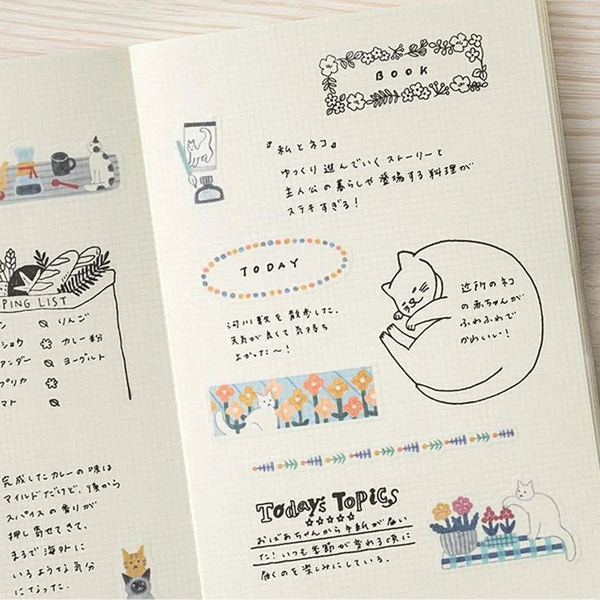 PING LIST
ン りんご
ショウ カレー粉
アンダー ヨーグルト
プリカ
マト
完成したカレーの味は
マイルドだけど、後から
スパイスの香りが
押し寄せてきて、
まるで海外に
いるような気分
になった。
BOOK
『私とネコ』
ゆっくり進んでいくストーリーと
主人公の暮らしや登場する料理が
ステキすぎる!
TODAY
河川敷を散歩した。
天気が良くて気持ち
上がった〜!
近所のネコ
の赤ちゃんが
ふわふわで
かわいい!
Today's Topics
おばあちゃんから手紙が届い
た!いつも季節が変わる頃に
届くのを楽しみにしている。